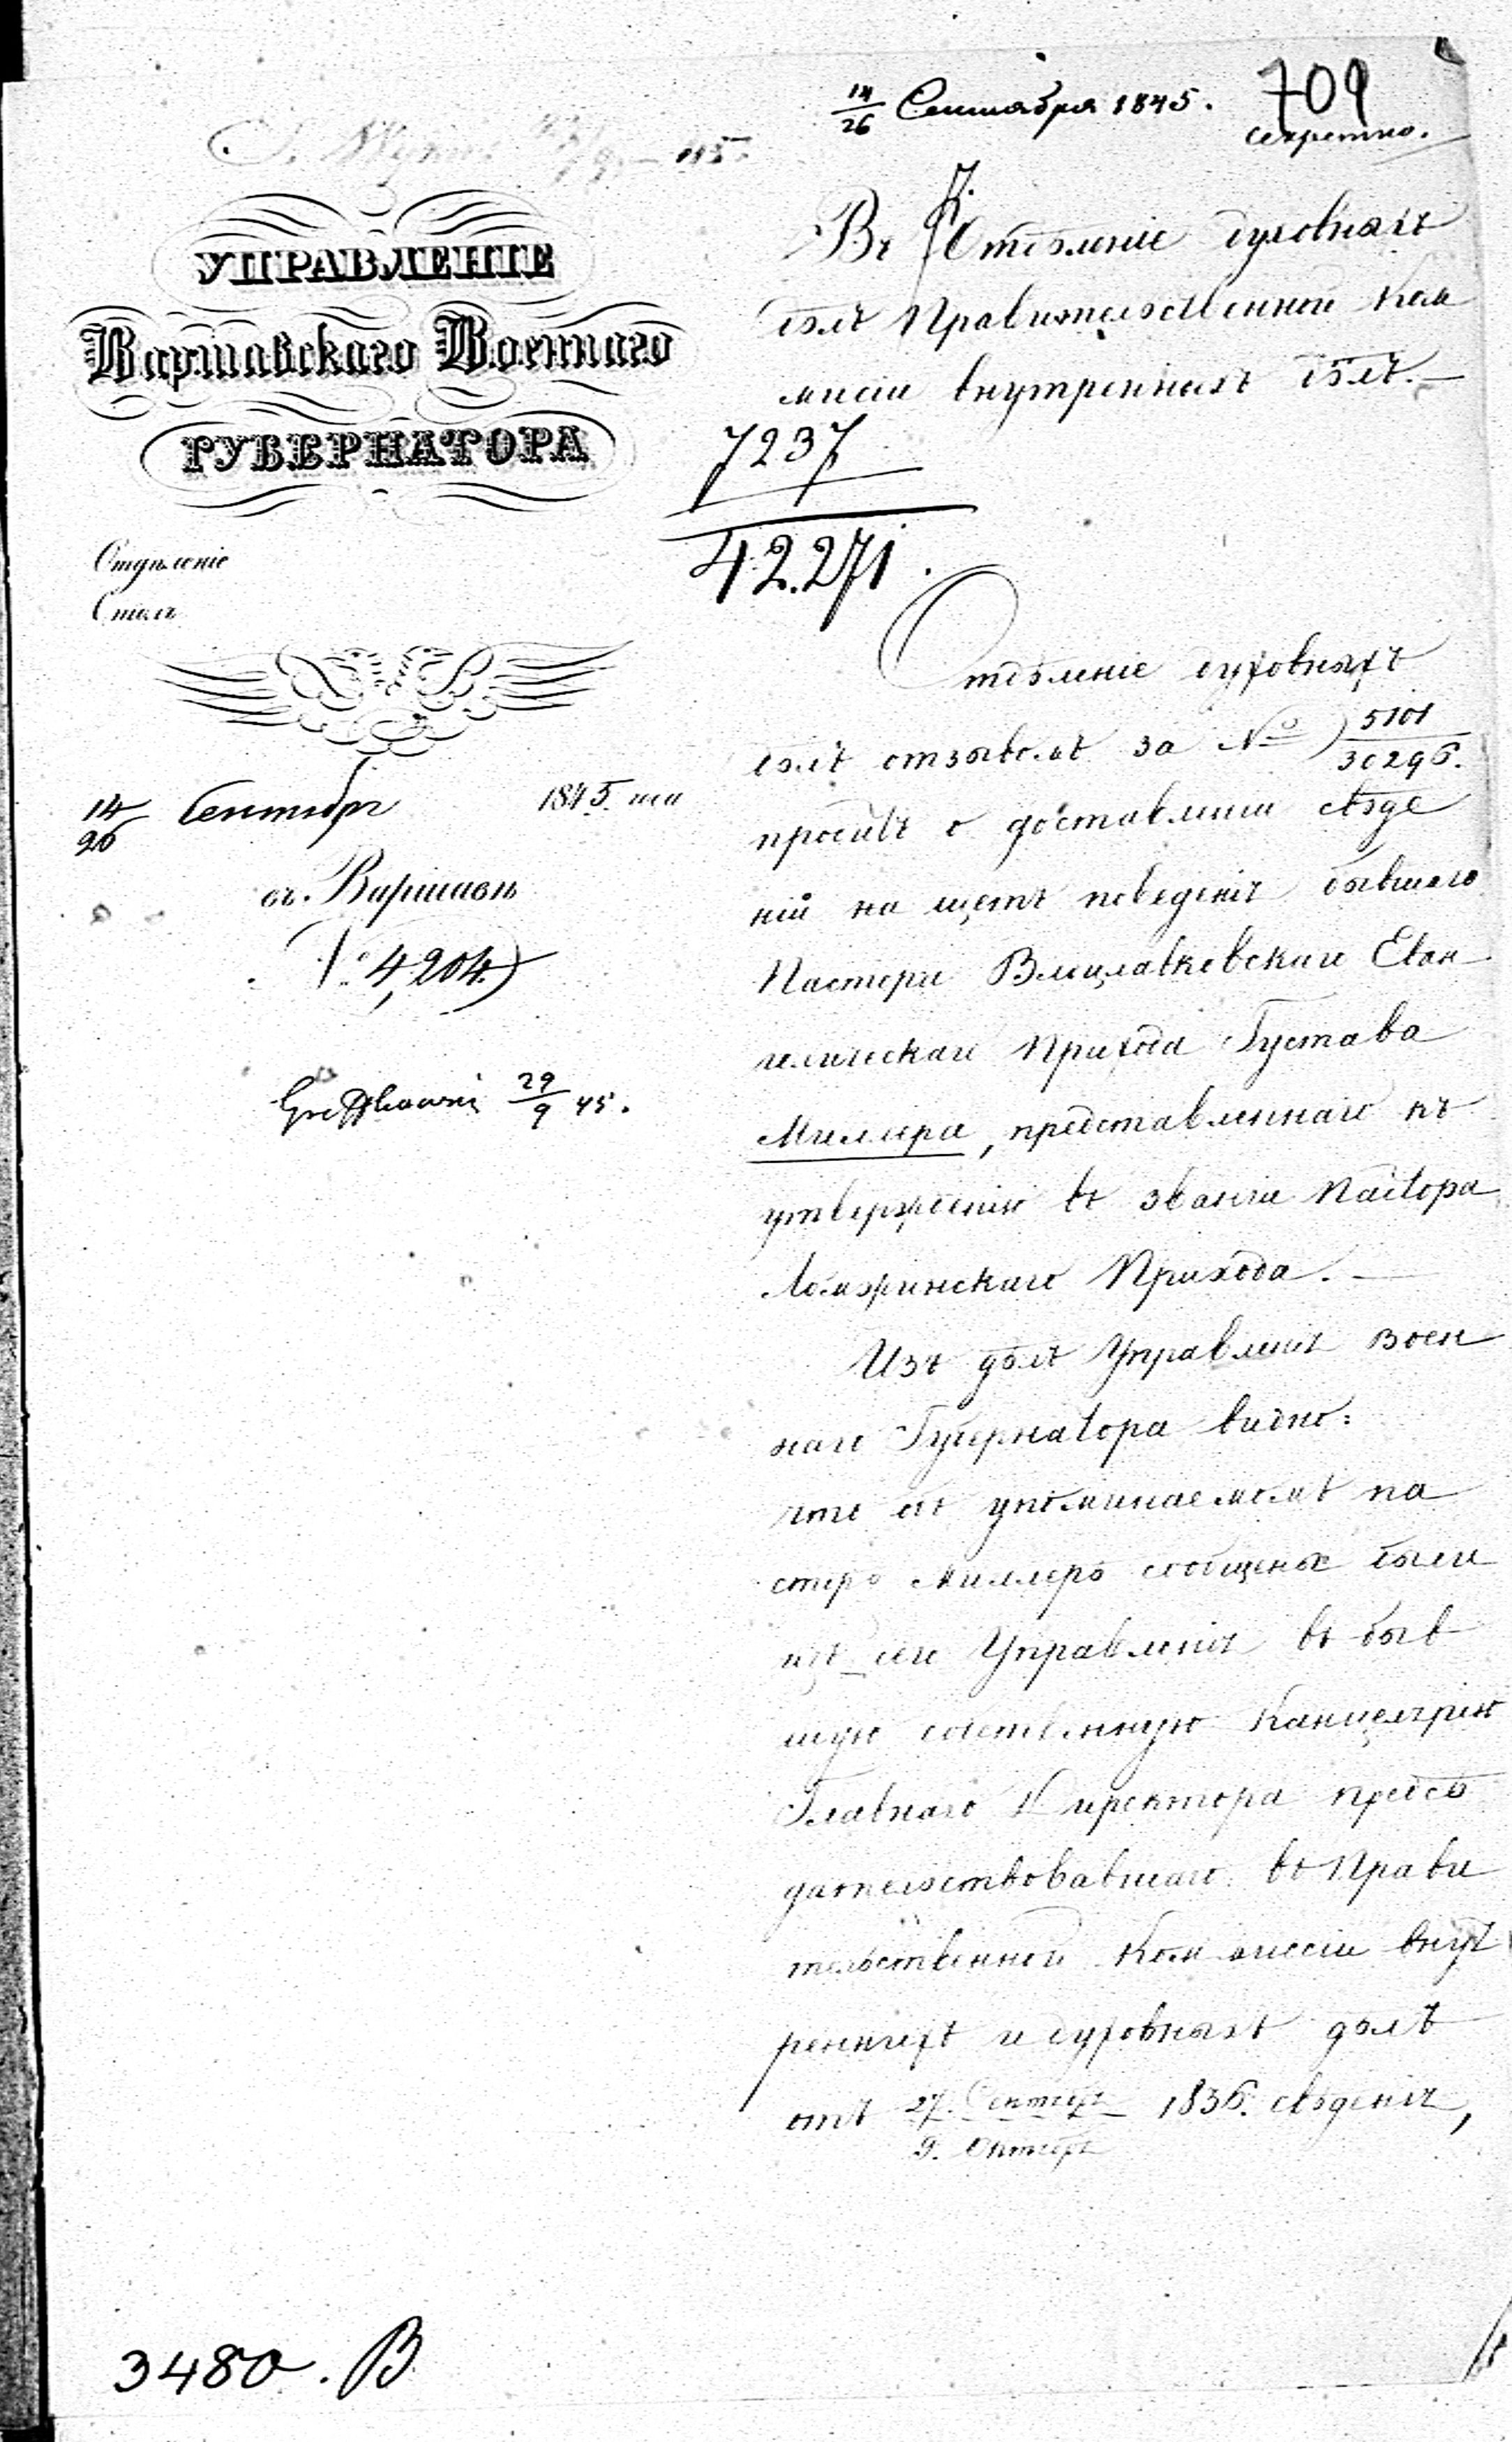 14/26 Сентября 1845. 709
секретно.
УПРАВЛЕНІЕ
Варшавскаго Военнаго
ГУБЕРНАТОРА
Отдѣленіе
Столъ
14/26 Сентября 1845. года
въ. Варшавѣ
№ 4,204.
29/9 45.
Въ Отдѣленіе духовныхъ
дѣлъ Правительственной Ком
мисіи внутренныхъ дѣлъ. —
7237
42.271.
Отдѣленіе духовныхъ
дѣлъ отзывомъ за № 5101/30296.
проситъ о доставленіи свѣде
ній на щетъ поведенія бывшаго
Пастора Влоцлавковскаго Еван
гелическаго Прихода Густава
Миллера, представленнаго къ
утвержденію въ званіи Пастора
Ломжинскаго Прихода. —
Изъ дѣлъ Управленія Воен
наго Губернатора видно:
что объ упоминаемомъ па
сторѣ Миллерѣ сообщены были
изъ сего Управленія въ быв
шую собственную Канцелярію
Главнаго Директора предсѣ
дательствовавшаго въ Прави
тельственной Коммиссіи внут
реннихъ и духовныхъ дѣлъ
отъ 27. Сентября / 9. Октября 1836. свѣденія,
3480. В